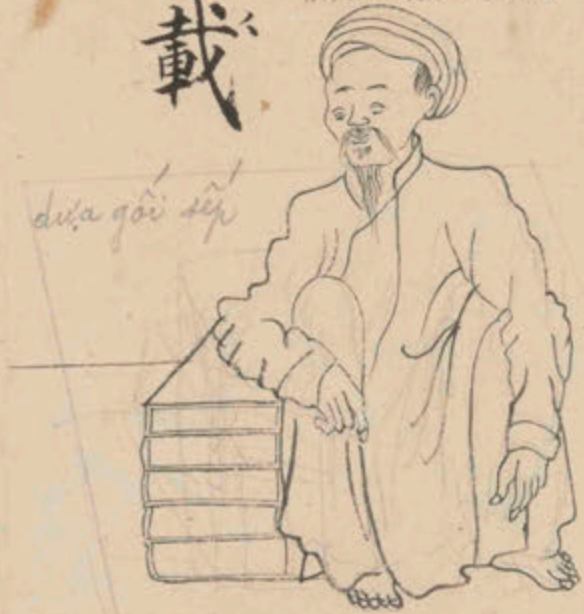 載
dựa gối sếp